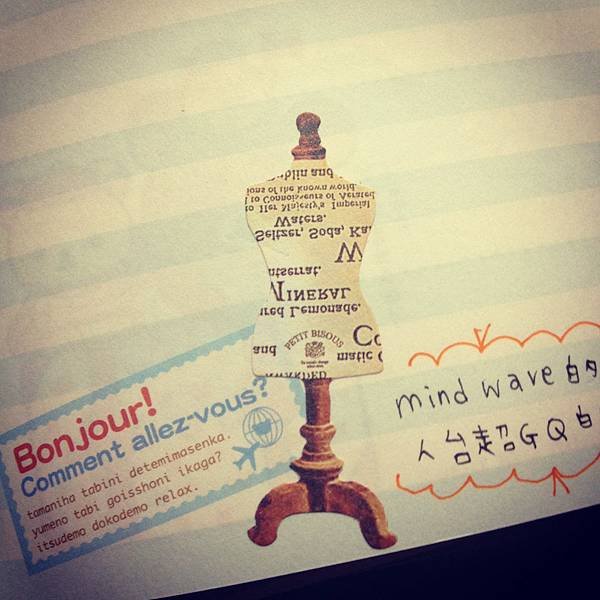 ublin and
ions of the known world
l to Connoisseurs of Aerated
to Her Majesty's Imperial
Waters,
Seltzer, Soda, Ka
W
ntserrat.
MINERAL
ured Lemonade.
Co
PETIT BISOUS
and
matic
AWARDED
Bonjour!
Comment allez-vous?
tamaniha tabini detemimasenka.
yumeno tabi goisshoni ikaga?
itsudemo dokodemo relax.
mind wave 的
人台超GQ